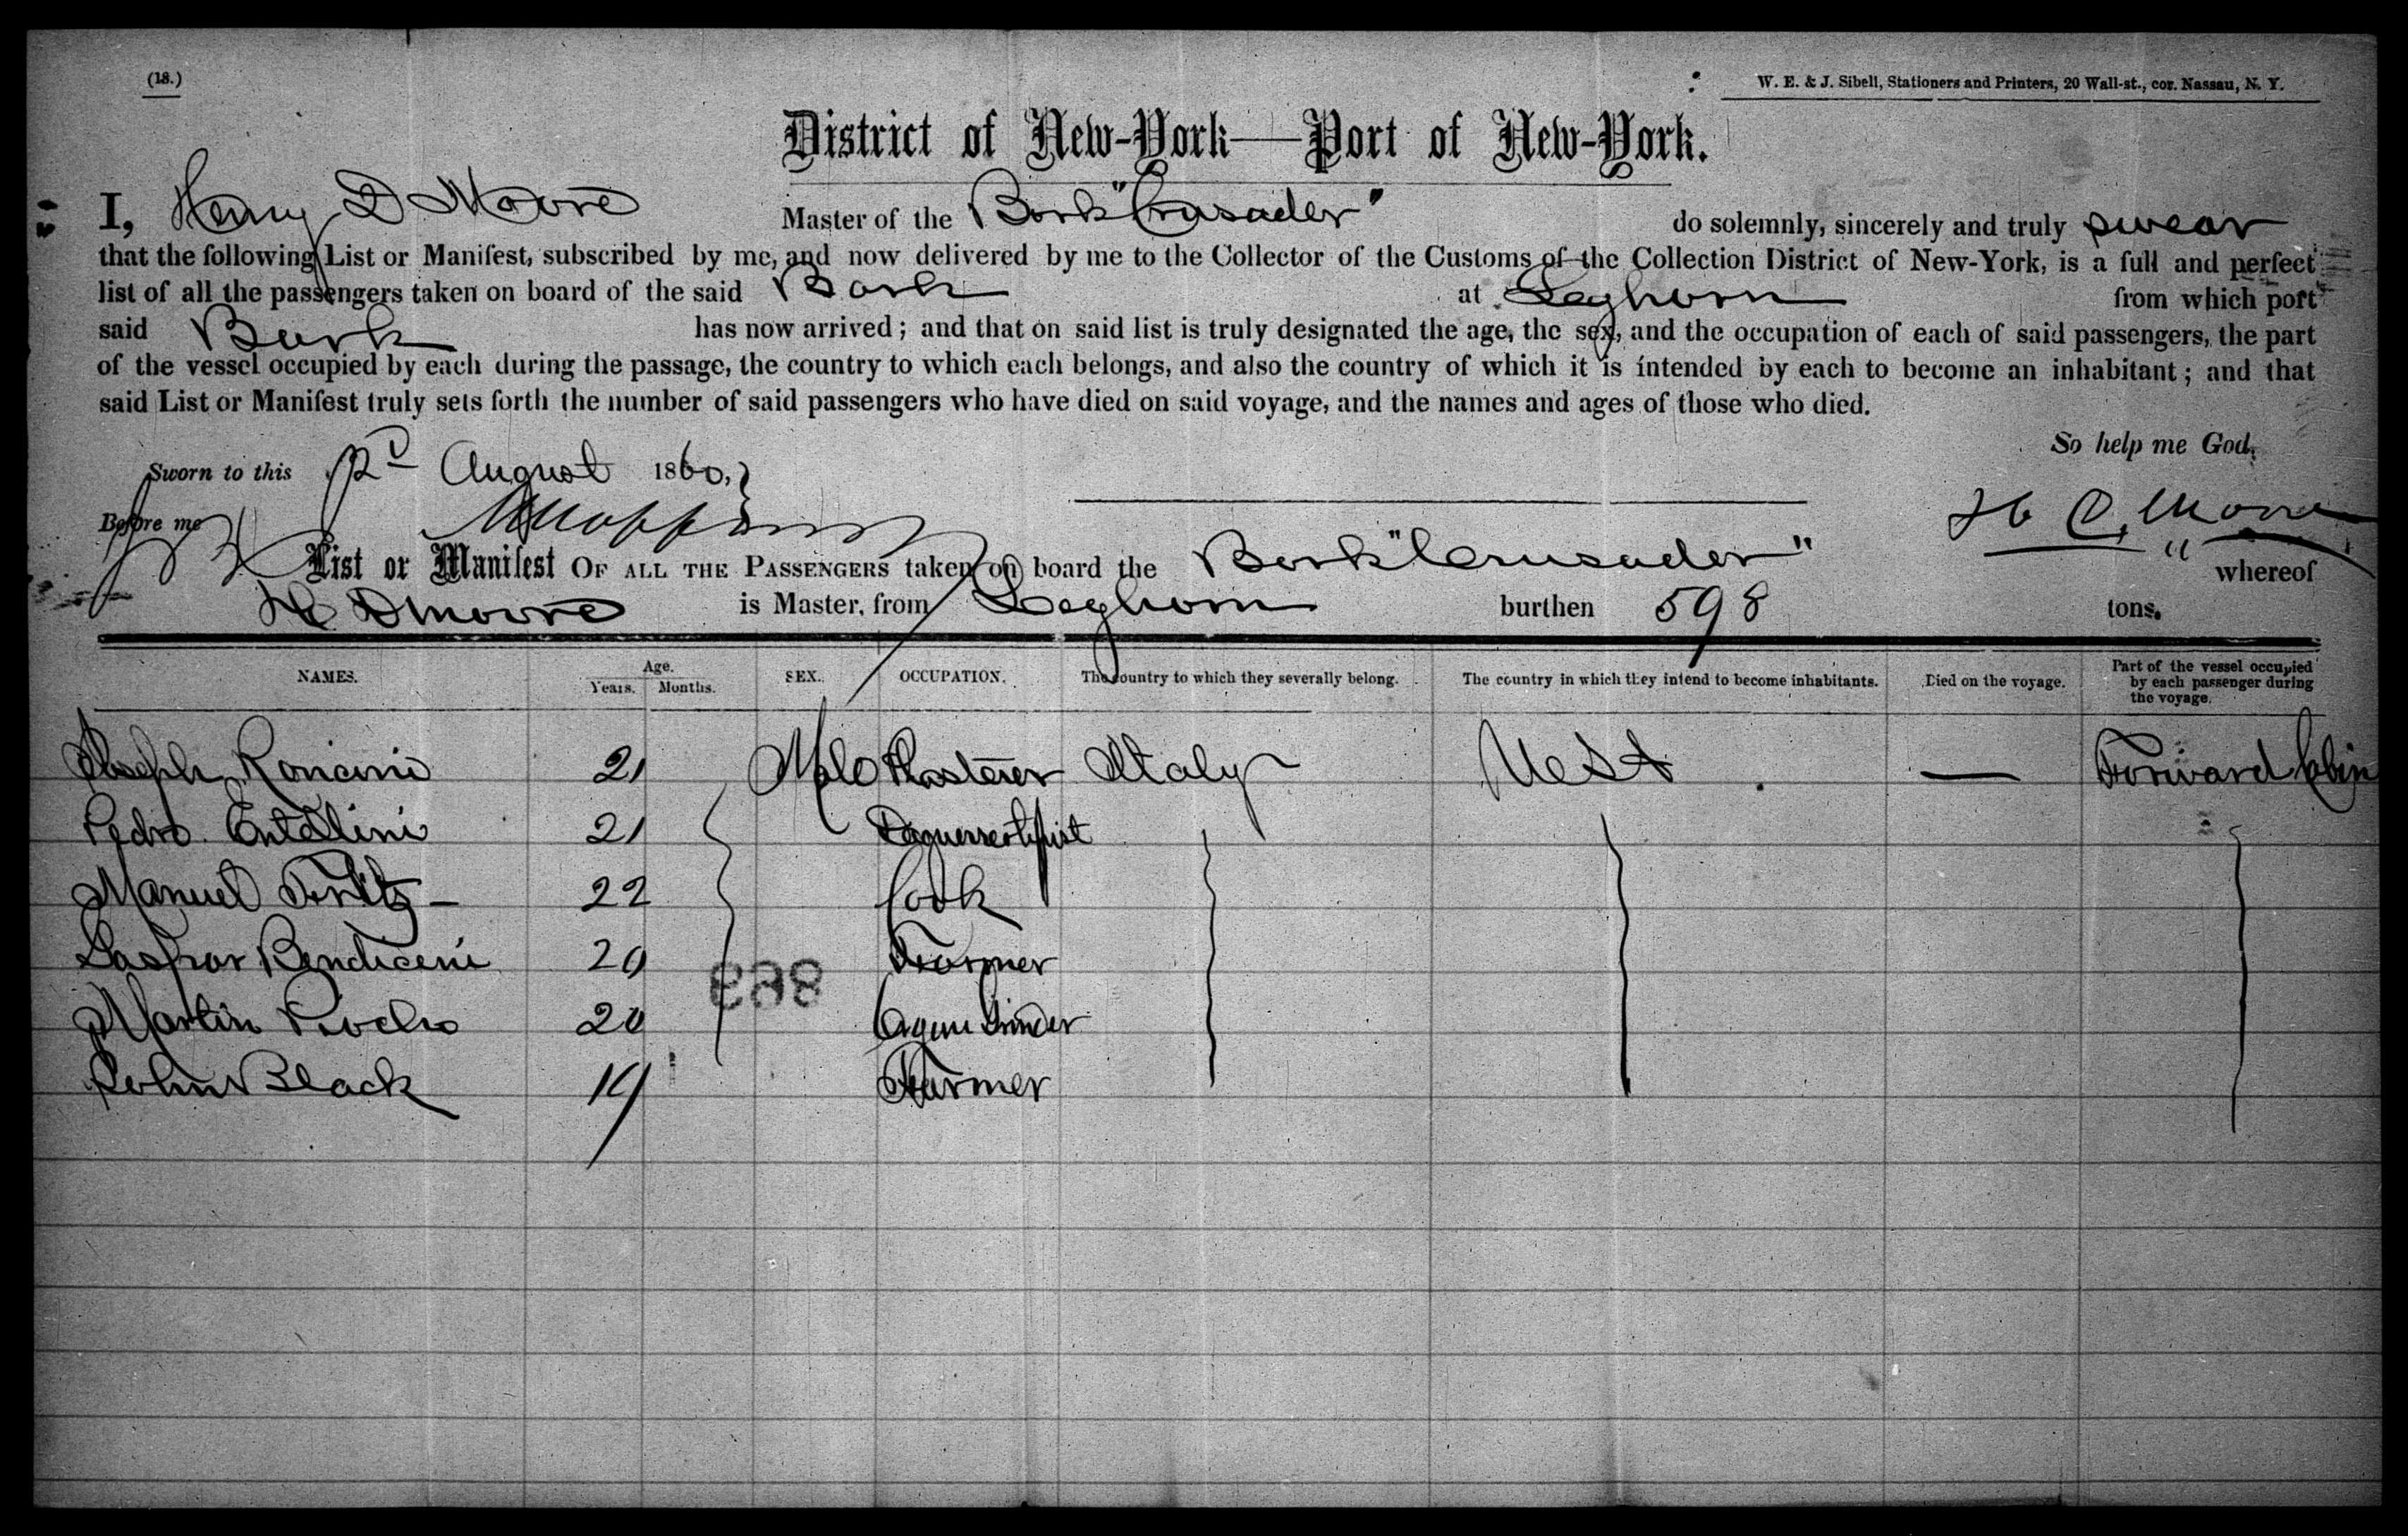 (18.)
W. E. & J. Sibell, Stationers and Printers, 20 Wall-st., cor. Nassau, N. Y.
District of New-York—Port of New-York.
I, Henry D Moore Master of the Bark "Crusader" do solemnly, sincerely and truly swear
that the following List or Manifest, subscribed by me, and now delivered by me to the Collector of the Customs of the Collection District of New-York, is a full and perfect
list of all the passengers taken on board of the said Bark at Leghorn from which port
said Bark has now arrived; and that on said list is truly designated the age, the sex, and the occupation of each of said passengers, the part
of the vessel occupied by each during the passage, the country to which each belongs, and also the country of which it is intended by each to become an inhabitant; and that
said List or Manifest truly sets forth the number of said passengers who have died on said voyage, and the names and ages of those who died.
So help me God.
Sworn to this August 1860,
Before me
H D. Moore
List or Manifest OF ALL THE PASSENGERS taken on board the Bark "Crusader" " whereof
H D Moore is Master, from Leghorn burthen 598 tons.
NAMES. Age. Years. Months. SEX. OCCUPATION. The country to which they severally belong. The country in which they intend to become inhabitants. Died on the voyage. Part of the vessel occupied by each passenger during the voyage.
Joseph Roncini 21 Male Plasterer Italy U S A — Forward Cabin
Pedro 21 Daguerreotypist
Manuel 22 Cook
Gaspar Bendiceni 20 Farmer
Martin 20 Organ Grinder
John Black 19 Farmer
883